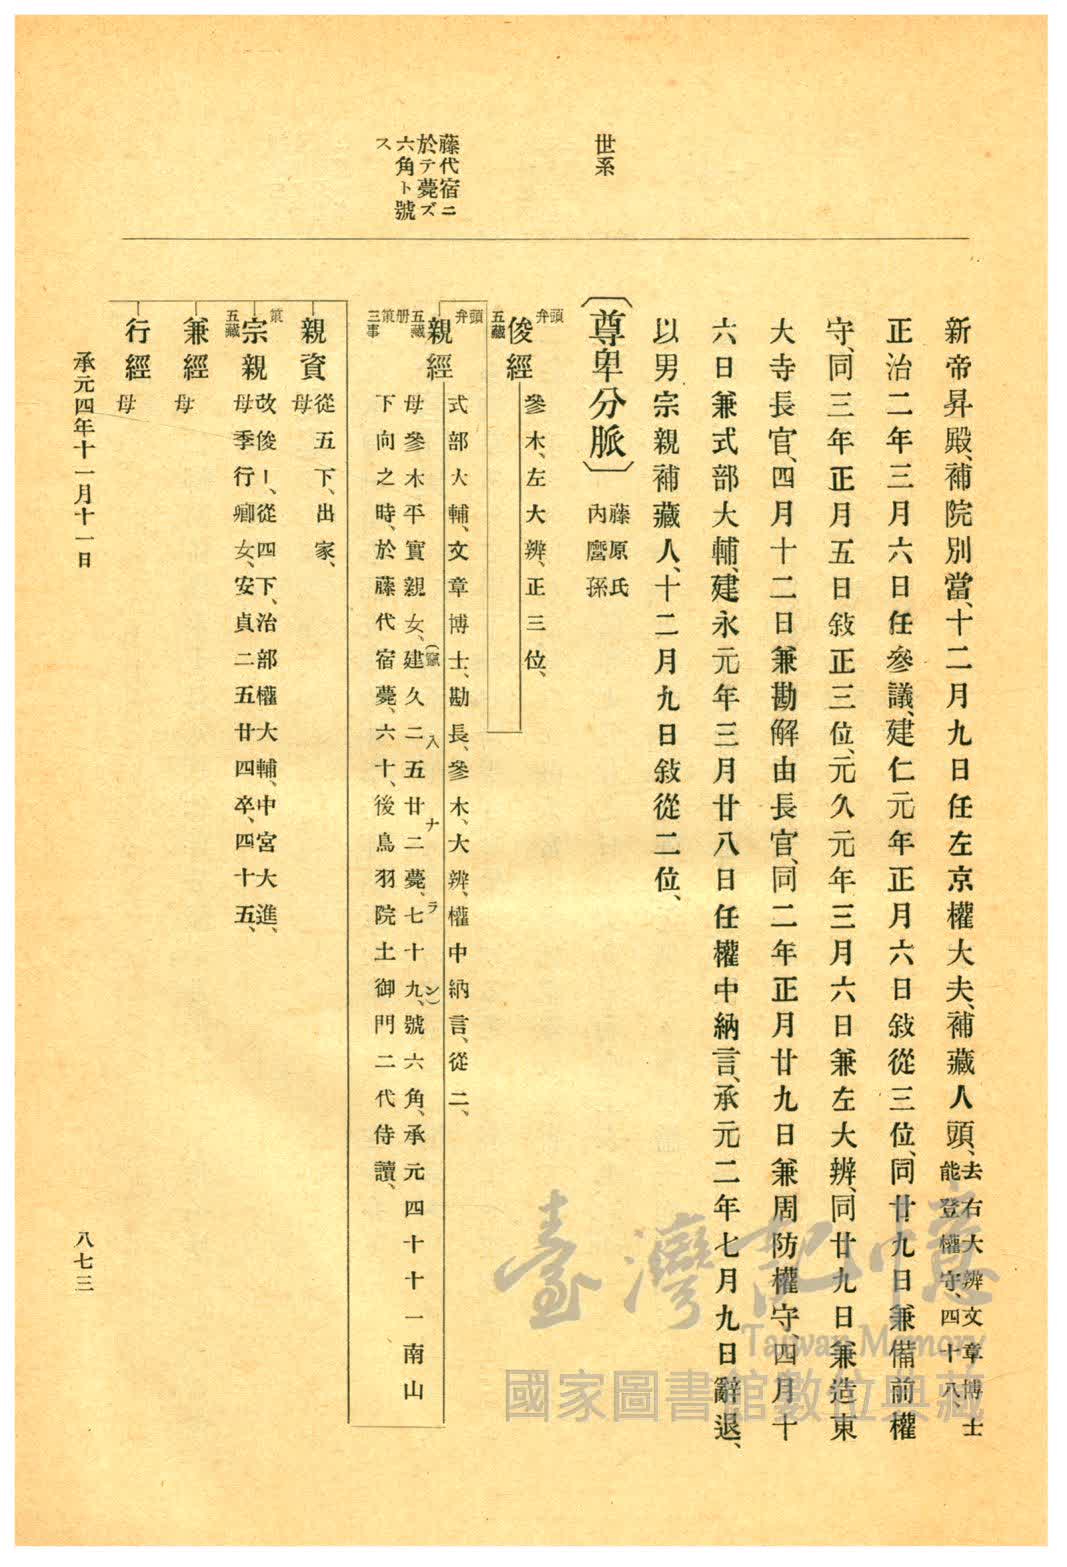 世系
藤代宿ニ
於テ薨ズ
六角ト號
ス
新帝昇殿、補院別當、十二月九日任左京權大夫、補藏人頭、去右大辨文章博士
能登權守、四十八、
正治二年三月六日任參議、建仁元年正月六日敍從三位、同廿九日兼備前權
守、同三年正月五日敍正三位、元久元年三月六日兼左大辨、同廿九日兼造東
大寺長官、四月十二日兼勘解由長官、同二年正月廿九日兼周防權守、四月十
六日兼式部大輔、建永元年三月廿八日任權中納言、承元二年七月九日辭退、
以男宗親補藏人、十二月九日敍從二位、
〔尊卑分脈〕
藤原氏
內麿孫
頭
弁
俊經
五藏
參木、左大辨、正三位、
頭
弁
親經
五藏
册
策
三事
式部大輔、文章博士、勘長、參木、大辨、權中納言、從二、
母參木平實親女、建久二五廿二薨、七十九、號六角、承元四十十一南山
(竄入ナラン)
下向之時、於藤代宿薨、六十、後鳥羽院土御門二代侍讀、
親資
從五下、出家、
母
策
宗親
五藏
改俊ー、從四下、治部權大輔、中宮大進、
母季行卿女、安貞二五廿四卒、四十五、
兼經
母
行經
母
承元四年十一月十一日
八七三
臺灣記憶
Taiwan Memory
國家圖書館數位典藏